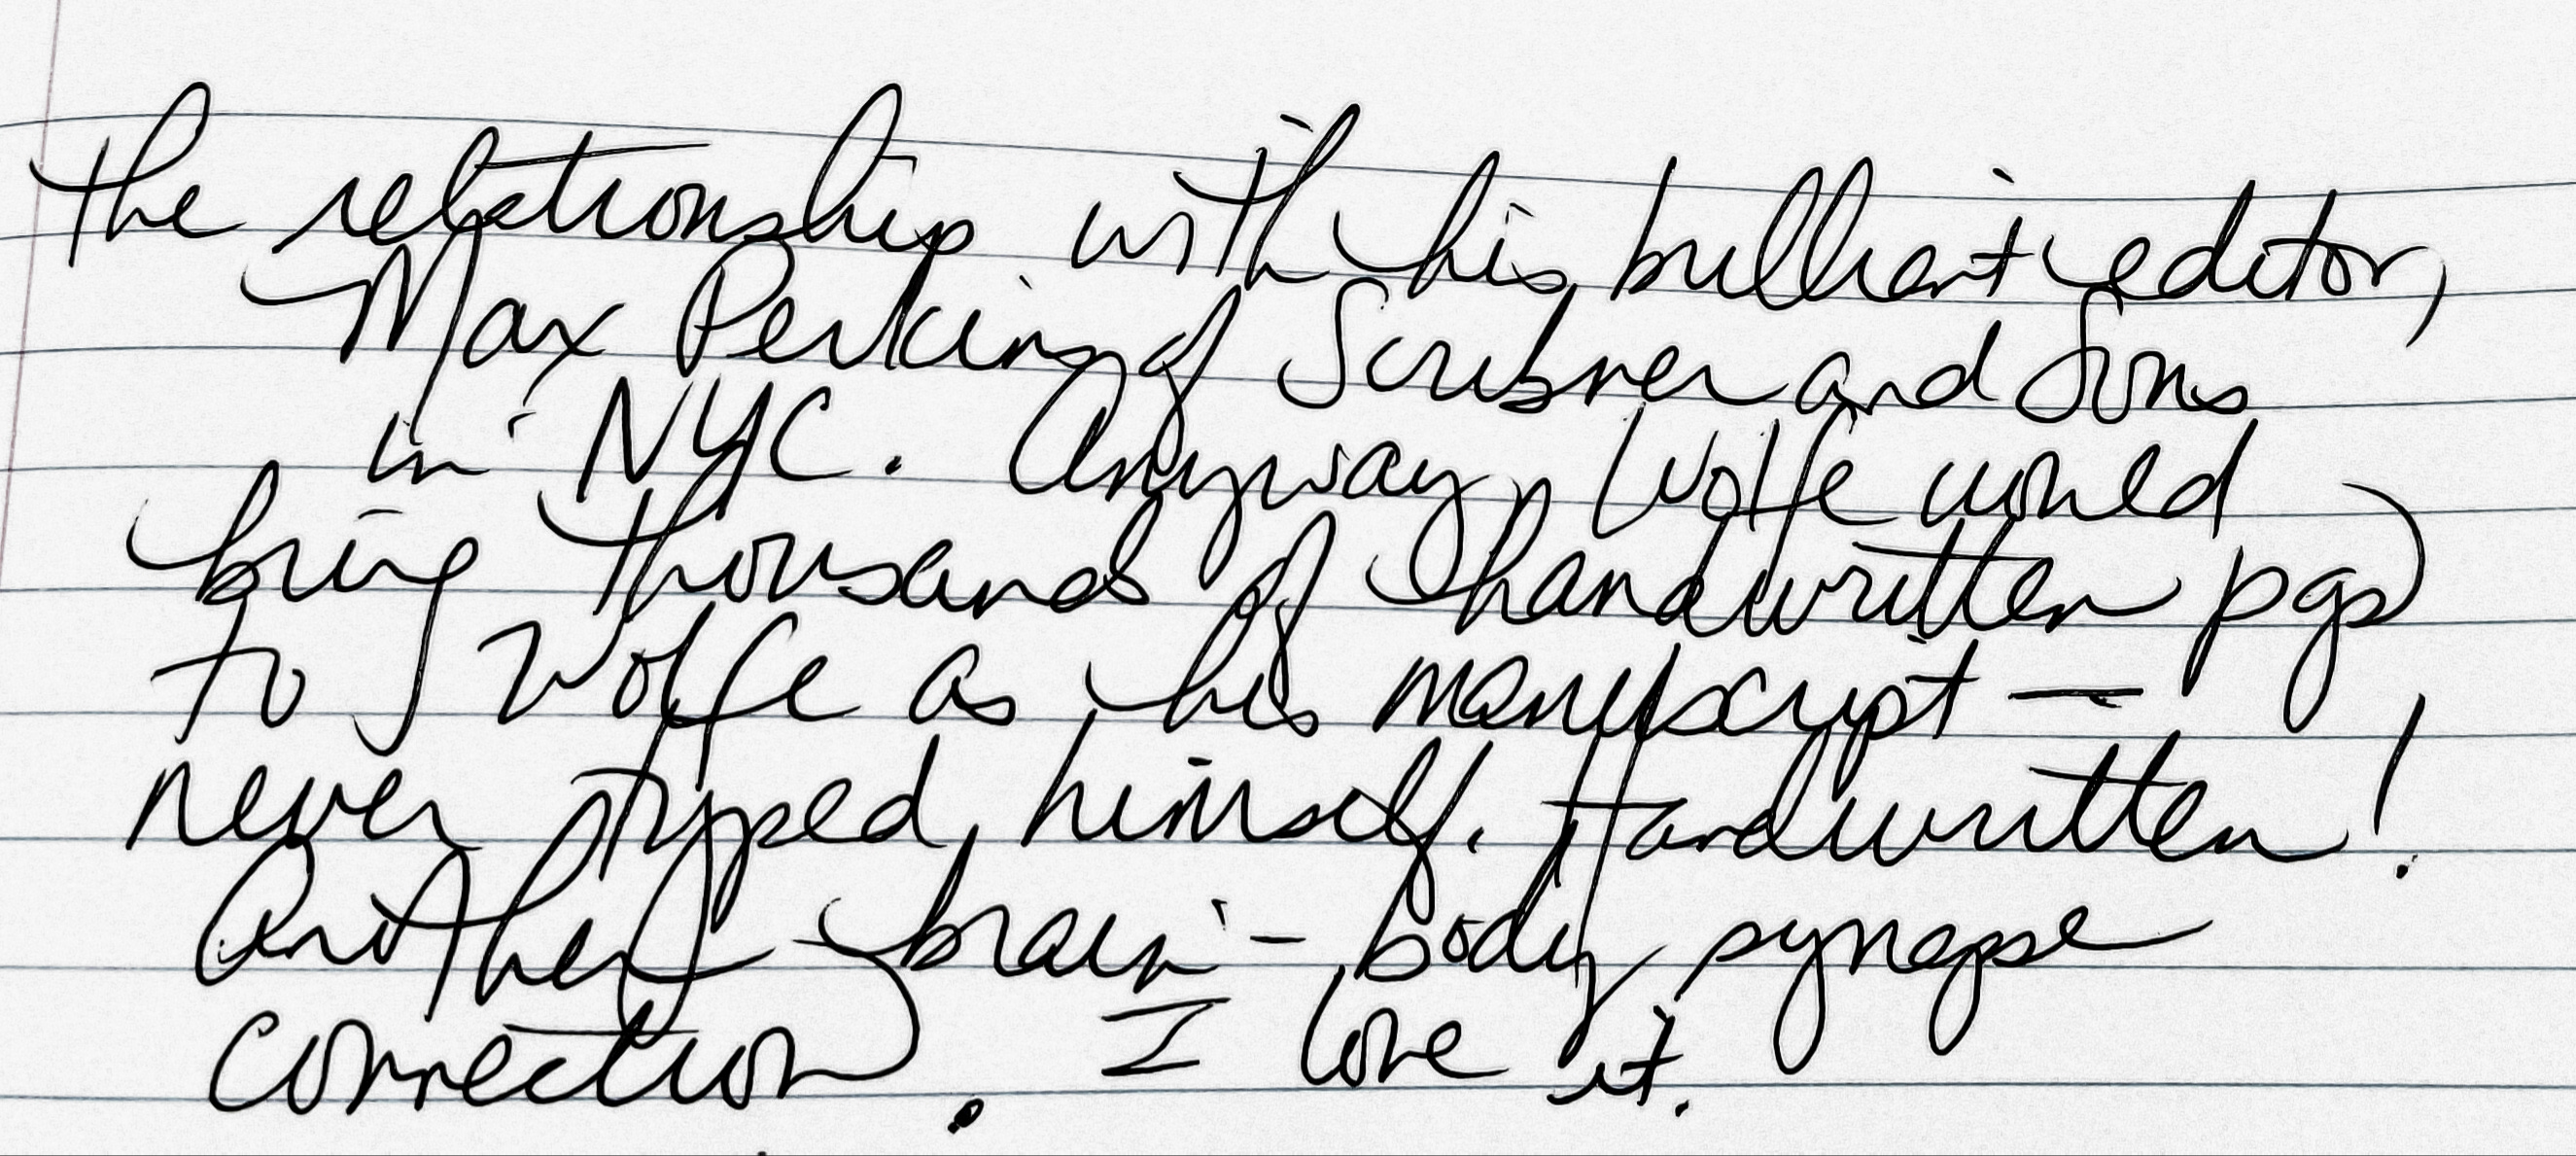 the relationship with his brilliant editor,
Max Perkins of Scribner and Sons
in NYC. Anyway, Wolfe would
bring thousands of handwritten pgs
to Wolfe as his manuscript —
never typed, himself. Handwritten!
Another brain-body synapse
connection. I love it.